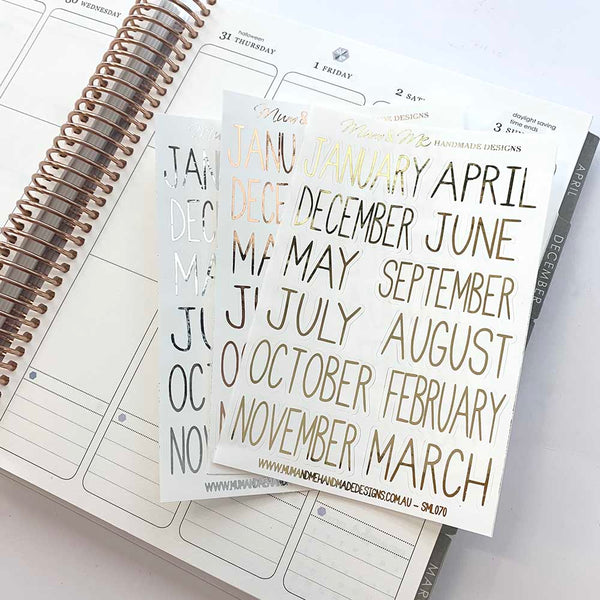 30 WEDNESDAY
halloween
31 THURSDAY
1 FRIDAY
2 SAT
daylight saving
time ends
3 SUN
APRIL
DECEMBER
MAR
JAN
DEC
MA
JU
OCT
NOV
WWW.MUM
Mum &
JANU
DECE
MA
JU
OC
NO
Mum & Me HANDMADE DESIGNS
JANUARY APRIL
DECEMBER JUNE
MAY SEPTEMBER
JULY AUGUST
OCTOBER FEBRUARY
NOVEMBER MARCH
WWW.MUMANDMEHANDMADEDESIGNS.COM.AU - SML070